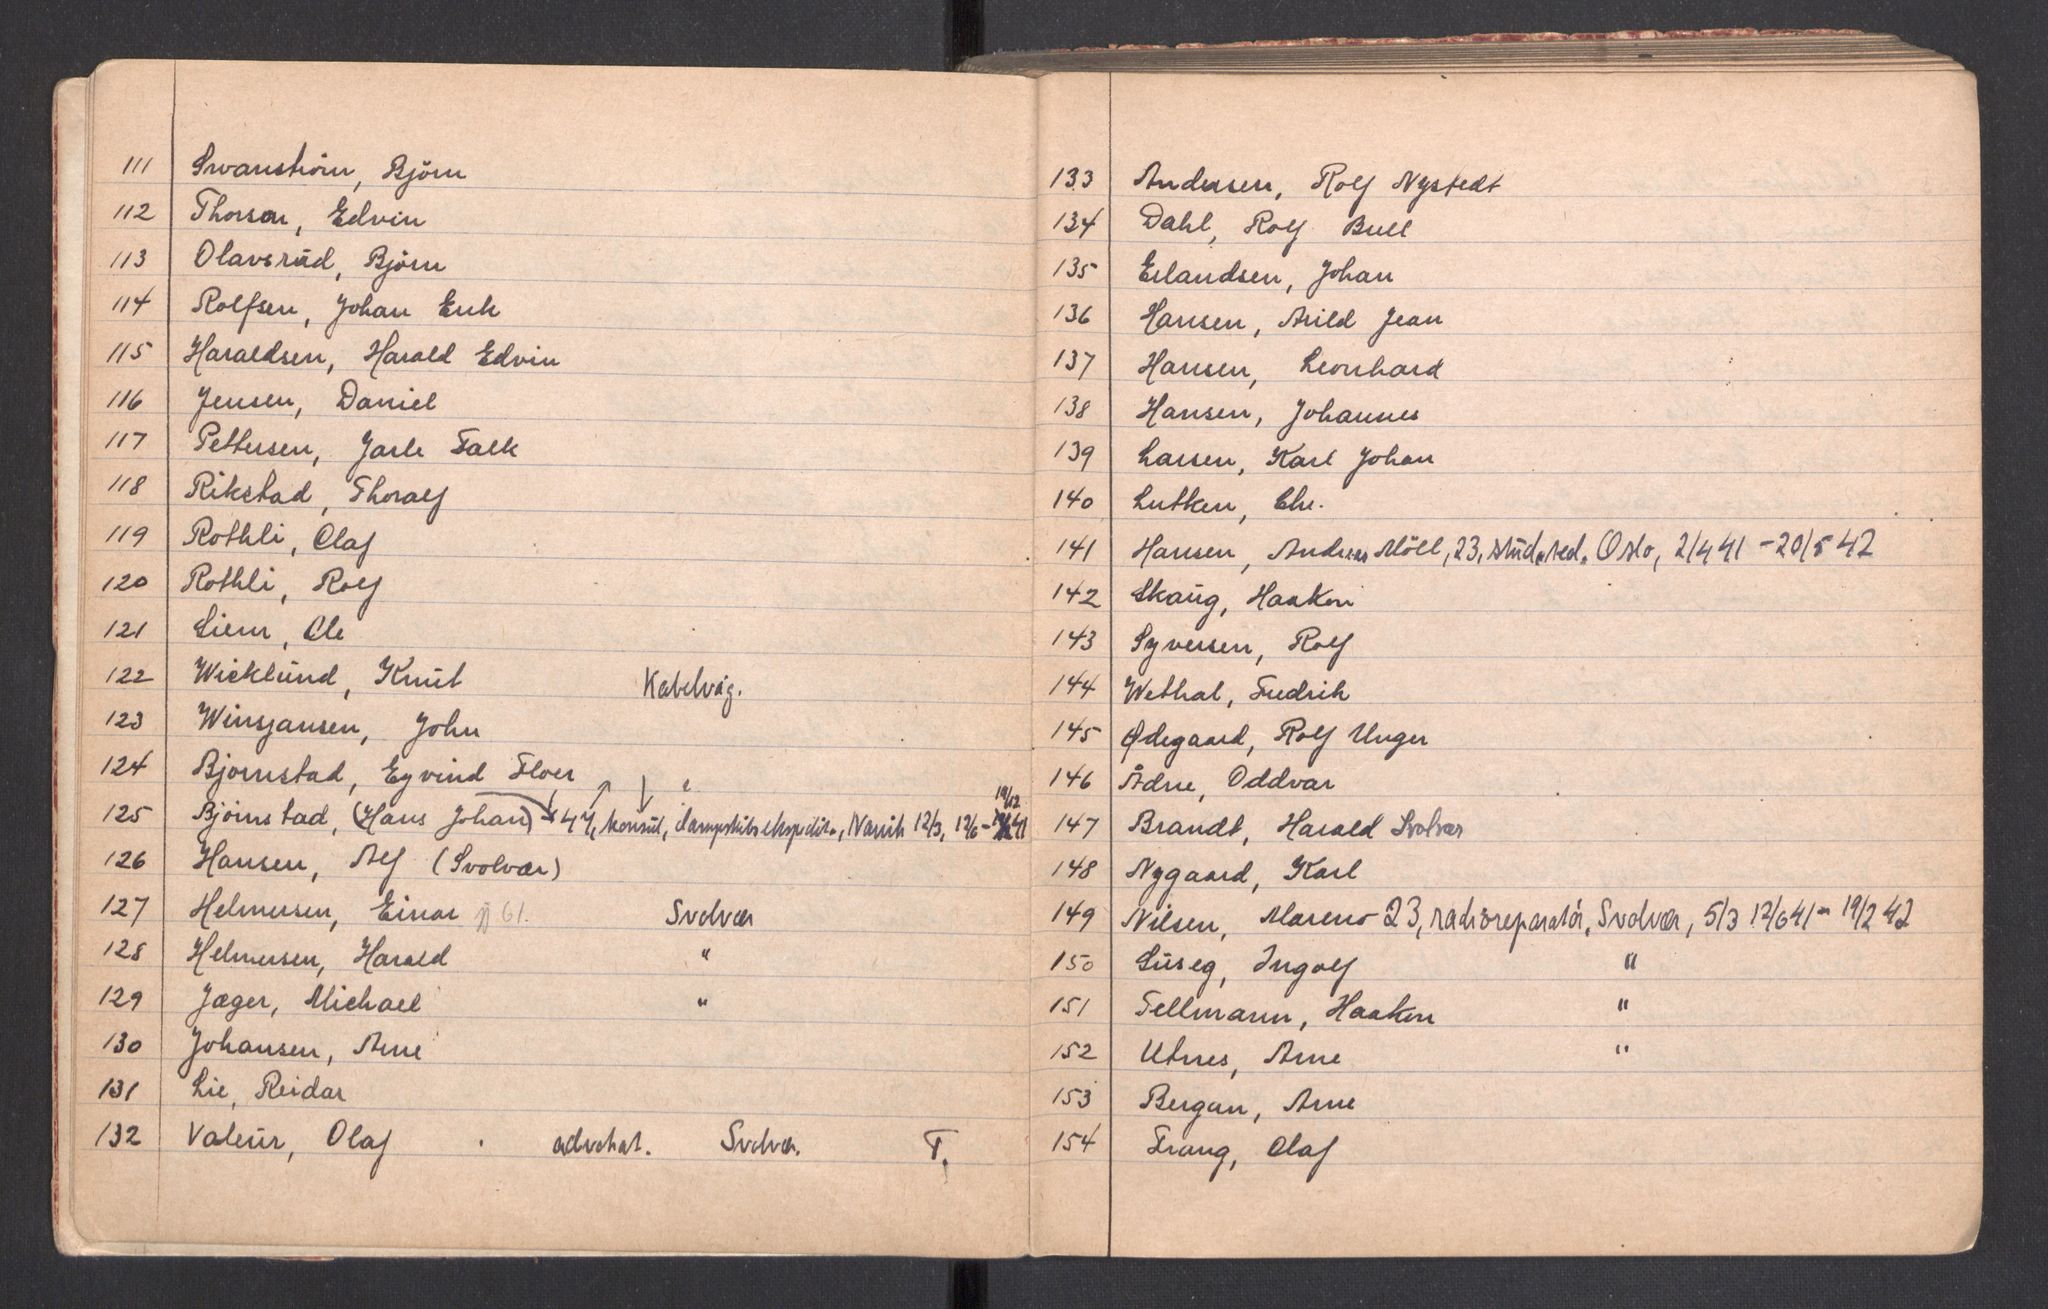 111 Swanström, Björn
112 Thorson, Edvin
113 Olavsrud, Björn
114 Rolfsen, Johan Erik
115 Haraldsen, Harald Edvin
116 Jensen, Daniel
117 Pettersen, Jarle Falk
118 Rikstad, Thoralf
119 Rothli, Olaf
120 Rothli, Rolf
121 Siem, Ole
122 Wicklund, Knut Kabelvåg.
123 Winsjansen, John
124 Bjørnstad, Eyvind Floer "
125 Bjørnstad, (Hans Johan) 47, konsul, dampskibsekspeditr, Narvik 12/3, 12/6 - 19/12 41
126 Hansen, Alf (Svolvær)
127 Helmersen, Einar 61. Svolvær
128 Helmersen, Harald "
129 Jæger, Michael "
130 Johansen, Arne
131 Lie, Reidar
132 Valeur, Olaf advokat. Svolvær. T.
133 Andersen, Rolf Nystedt
134 Dahl, Rolf Bull
135 Erlandsen, Johan
136 Hansen, Arild Jean
137 Hansen, Leonhard
138 Hansen, Johannes
139 Larsen, Karl Johan
140 Lutken, Chr.
141 Hansen, Andreas Möll, 23, stud.med. Oslo, 2/4 41 - 20/5 42
142 Skaug, Haakon
143 Syversen, Rolf
144 Wethal, Fredrik
145 Ødegaard, Rolf Unger
146 Ådne, Oddvar
147 Brandt, Harald Svolvær
148 Nygaard, Karl
149 Nilsen, Mareno 23, radioreparatör, Svolvær, 5/3 12/6 41 - 19/2 42
150 Suseg, Ingolf "
151 Fellmann, Haakon "
152 Utnes, Arne "
153 Bergan, Arne
154 Trang, Olaf